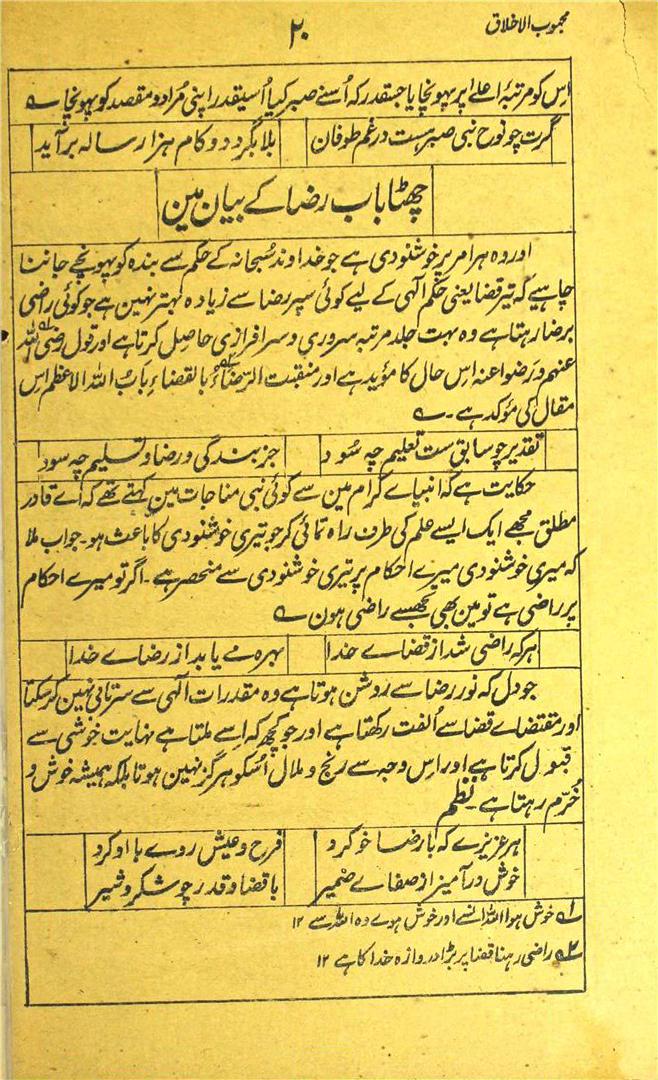 محبوب الاخلاق
۲۰
اس کو مرتبۂ اعلےٰ پر پہونچایا جسقدر کہ اُسنے صبر کیا اُسیقدر اپنی مُراد و مقصد کو پہونچا ؎
گرت چو نوح نبی صبر ہست در غم طوفان بلا بگردد و کام ہزار سالہ برآید
چھٹا باب رضا کے بیان مین
اور وہ ہر امر پر خوشنودی ہے جو خداوند سُبحانہ کے حکم سے بندہ کو پہونچے جاننا
چاہیے کہ تیرِ قضا یعنی حکم آلہی کے لیے کوئی سپر رضا سے زیادہ بہتر نہین ہے جو کوئی راضی
برضا رہتا ہے وہ بہت جلد مرتبہ سروری و سرافرازی حاصل کرتا ہے اور قول رضی اللہ
عنہم و رَضوا عنہ اِس حال کا مؤید ہے اور منقبت الرّضاءُ بالقضاءِ بَابُ اللہ الاعظم اس
مقال کی مؤکد ہے ۔ ؎
تقدیر چو سابق ست تعلیم چہ سُود جز بندگی و رضا و تسلیم چہ سود
حکایت ہے کہ انبیاے کرام مین سے کوئی نبی مناجات مین کہتے تھے کہ اے قادر
مطلق مجھے ایک ایسے علم کی طرف راہ نمائی کر جو تیری خوشنودی کا باعث ہو۔ جواب ملا
کہ میری خوشنودی میرے احکام پر تیری خوشنودی سے منحصر ہے ۔ اگر تو میرے احکام
پر راضی ہے تو مین بھی تجھسے راضی ہون ؎
ہر کہ راضی شد از قضاے خدا بہرہ مے یابد از رضاے خدا
جو دل کہ نور رضا سے روشن ہوتا ہے وہ مقدرات آلہی سے سرتابی نہین کر سکتا
اور مقتضاے قضا سے اُلفت رکھتا ہے اور جو کچھ کہ اِسے ملتا ہے نہایت خوشی سے
قبول کرتا ہے اور اس وجہ سے رنج و ملال اُسکو ہرگز نہین ہوتا بلکہ ہمیشہ خوش و
خُرّم رہتا ہے ۔ نظم
ہر عزیزے کہ با رضا خو کرد فرح و عیش روے با او کرد
خوش درآمیز از صفاے ضمیر با قضا و قدر چو شکر و شیر
۱؎ خوش ہوا اللہ اُنسے اور خوش ہوے وہ اللہ سے ۱۲
۲؎ راضی رہنا قضا پر بڑا دروازہ خدا کا ہے ۱۲